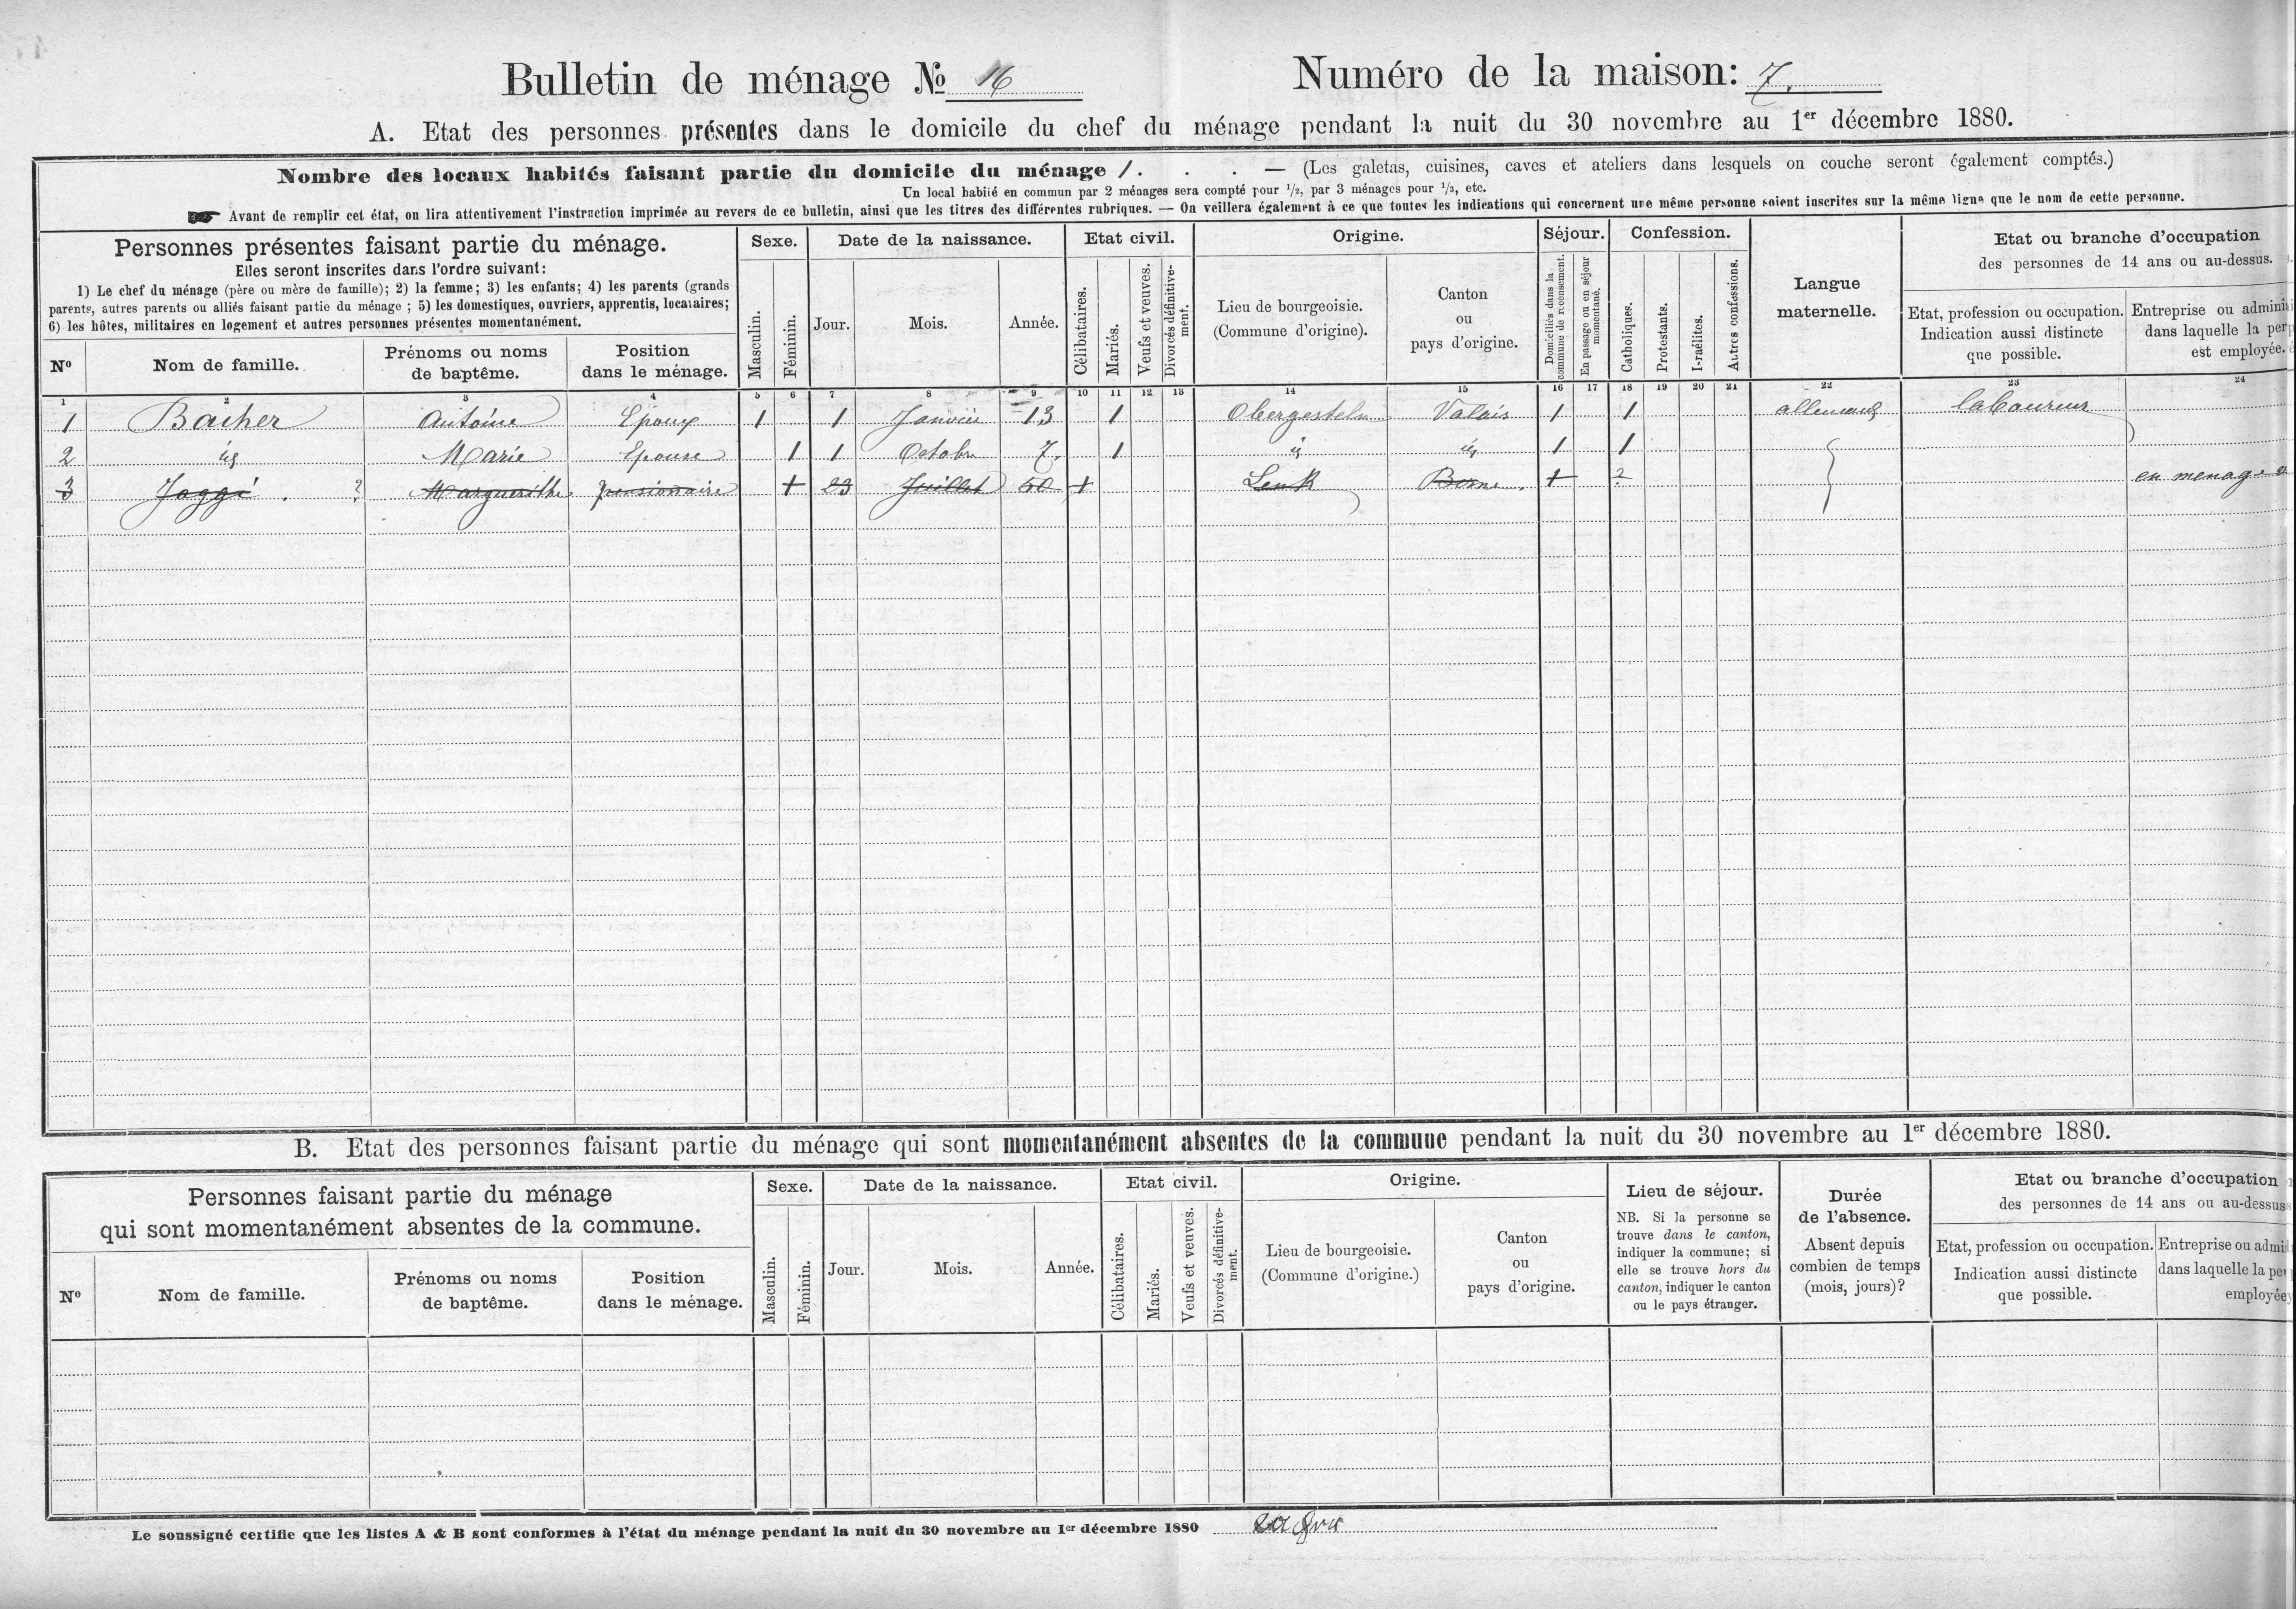 Bulletin de ménage No 16
Numéro de la maison: 7.
A. Etat des personnes présentes dans le domicile du chef du ménage pendant la nuit du 30 novembre au 1er décembre 1880.
Nombre des locaux habités faisant partie du domicile du ménage 1. . . — (Les galetas, cuisines, caves et ateliers dans lesquels on couche seront également comptés.)
Un local habité en commun par 2 ménages sera compté pour 1/2, par 3 ménages pour 1/3, etc.
Avant de remplir cet état, on lira attentivement l'instruction imprimée au revers de ce bulletin, ainsi que les titres des différentes rubriques. — On veillera également à ce que toutes les indications qui concernent une même personne soient inscrites sur la même ligne que le nom de cette personne.
Personnes présentes faisant partie du ménage.
Elles seront inscrites dans l'ordre suivant:
1) Le chef du ménage (père ou mère de famille); 2) la femme; 3) les enfants; 4) les parents (grands
parents, autres parents ou alliés faisant partie du ménage ; 5) les domestiques, ouvriers, apprentis, locataires;
6) les hôtes, militaires en logement et autres personnes présentes momentanément.
No
Nom de famille.
Prénoms ou noms
de baptême.
Position
dans le ménage.
Sexe.
Masculin.
Féminin.
Date de la naissance.
Jour.
Mois.
Année.
Etat civil.
Célibataires.
Mariés.
Veufs et veuves.
Divorcés définitive-
ment.
Origine.
Lieu de bourgeoisie.
(Commune d'origine).
Canton
ou
pays d'origine.
Séjour.
Domiciliés dans la
commune de recensement.
En passage ou en séjour
momentané.
Confession.
Catholiques.
Protestants.
Israélites.
Autres confessions.
Langue
maternelle.
Etat ou branche d'occupation
des personnes de 14 ans ou au-dessus.
Etat, profession ou occupation.
Indication aussi distincte
que possible.
Entreprise ou admini
dans laquelle la per
est employée.
1 2 3 4 5 6 7 8 9 10 11 12 13 14 15 16 17 18 19 20 21 22 23 24
1 Bacher Antoine Epoux 1 1 Janvier 13 1 Obergesteln Valais 1 1 allemand laboureur
2 id Marie Epouse 1 1 Octobre 7. 1 id id 1 1
3 Jaggi . ? Marguerithe pensionnaire + 23 Juillet 50 + Lenk Berne . + ? en menage
B. Etat des personnes faisant partie du ménage qui sont momentanément absentes de la commune pendant la nuit du 30 novembre au 1er décembre 1880.
Personnes faisant partie du ménage
qui sont momentanément absentes de la commune.
No
Nom de famille.
Prénoms ou noms
de baptême.
Position
dans le ménage.
Sexe.
Masculin.
Féminin.
Date de la naissance.
Jour.
Mois.
Année.
Etat civil.
Célibataires.
Mariés.
Veufs et veuves.
Divorcés définitive-
ment.
Origine.
Lieu de bourgeoisie.
(Commune d'origine.)
Canton
ou
pays d'origine.
Lieu de séjour.
NB. Si la personne se
trouve dans le canton,
indiquer la commune; si
elle se trouve hors du
canton, indiquer le canton
ou le pays étranger.
Durée
de l'absence.
Absent depuis
combien de temps
(mois, jours)?
Etat ou branche d'occupation
des personnes de 14 ans ou au-dessus
Etat, profession ou occupation.
Indication aussi distincte
que possible.
Entreprise ou admi
dans laquelle la pe
employée
Le soussigné certifie que les listes A & B sont conformes à l'état du ménage pendant la nuit du 30 novembre au 1er décembre 1880